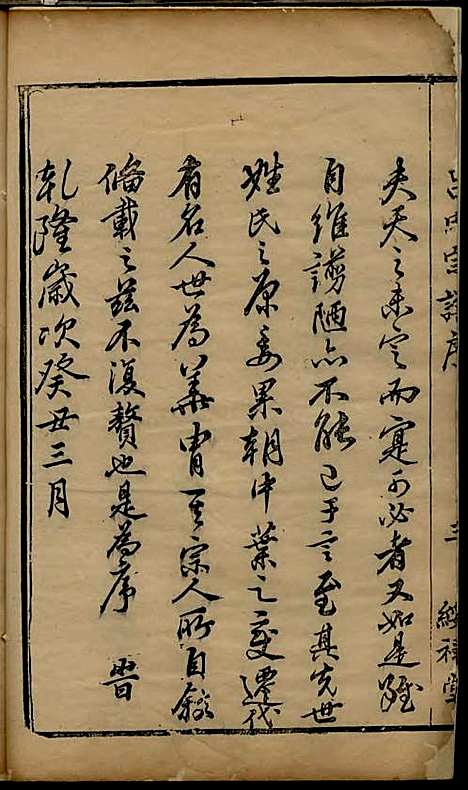 呂氏宗譜序 三
夫天之未定而寔可必者又如是雖
自維譾陋亦不能已于言至其先世
姓氏之原委累朝中葉之変遷代
有名人世為華冑其宗人所自敘
備載之茲不復贅也是為序 時
乾隆歲次癸丑三月